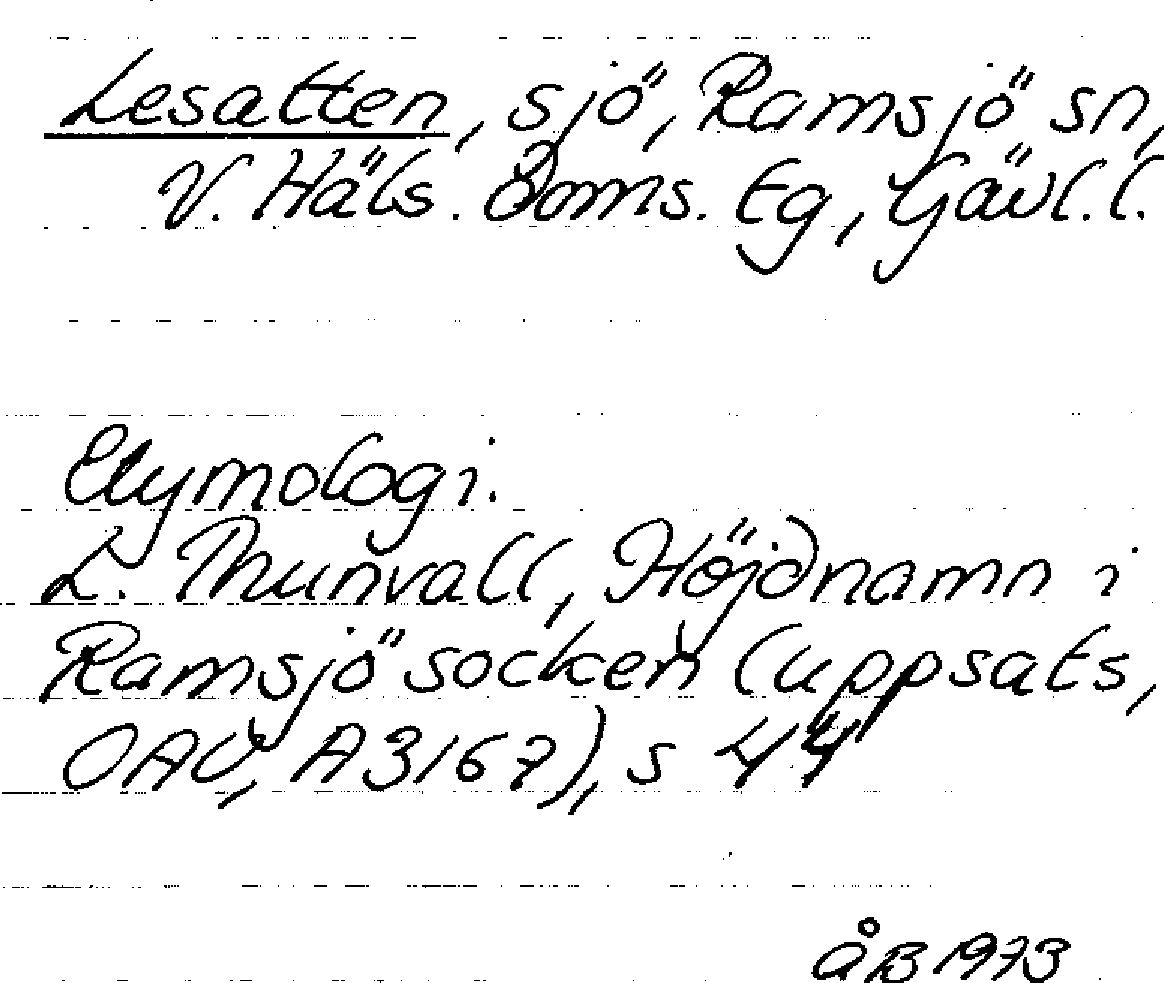 Lesatten, sjö, Ramsjö sn,
V. Häls. Doms. tg, Gävl. l.
Etymologi.
L. Thunvall, Höjdnamn i
Ramsjö socken (uppsats,
OAU, A3167), s 44
ÅB 1973